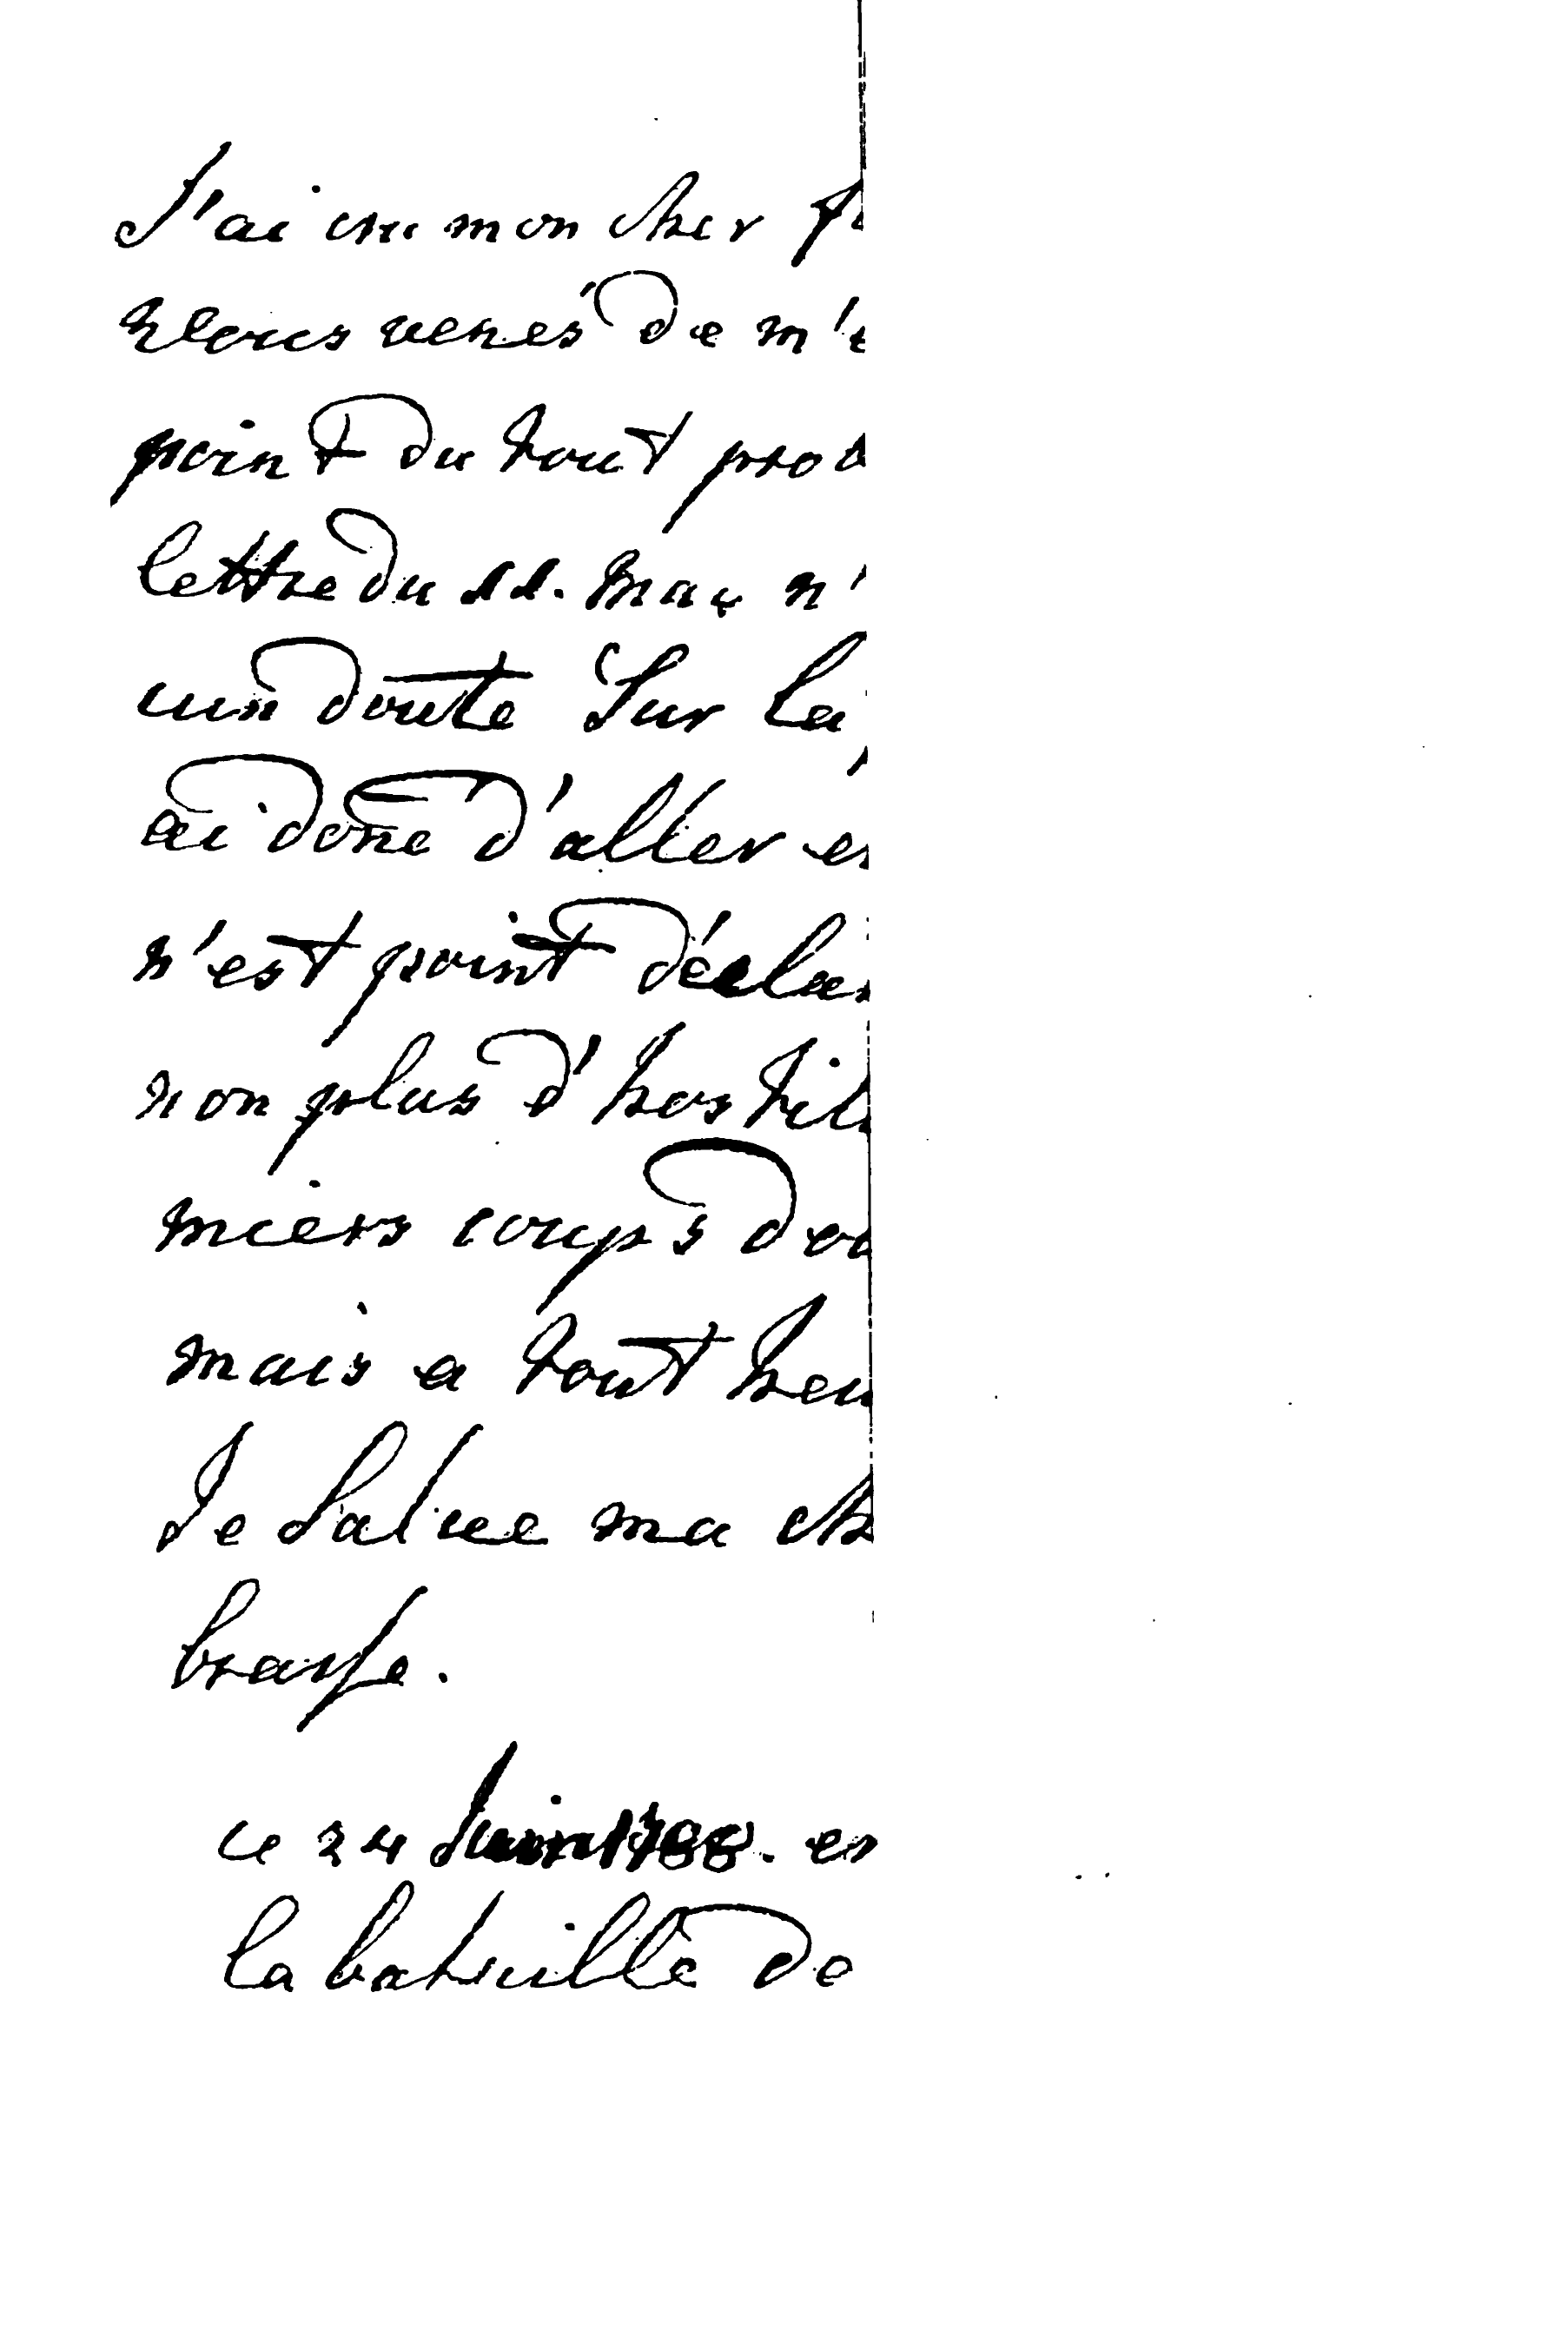 J'ai cru mon cher
vous venés de
point du tout
lettre du 11. may
cun doute Sur la
ai done d'aller
n'est point
non plus
miers coup's
mais a tout
Je Salue ma
brasse.
ce 24 Juin 1788. en
la bataille de